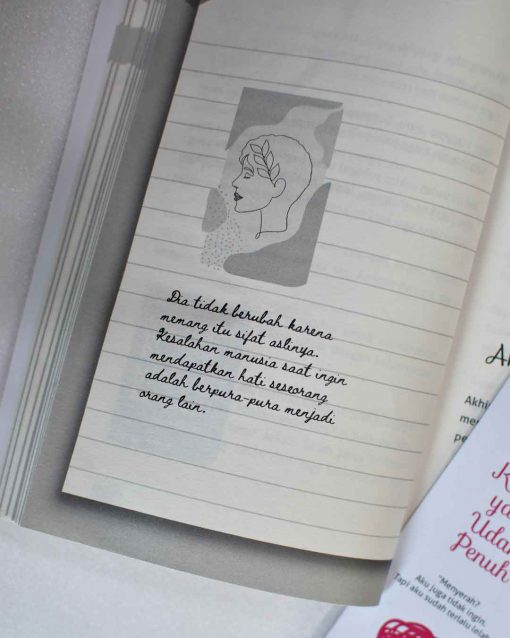 Dia tidak berubah karena
memang itu sifat aslinya.
Kesalahan manusia saat ingin
mendapatkan hati seseorang
adalah berpura-pura menjadi
orang lain.
Akhi
me
pe
Udar
Penuh
"Menyerah?
Aku juga tidak ingin.
Tapi aku sudah terlalu lelah